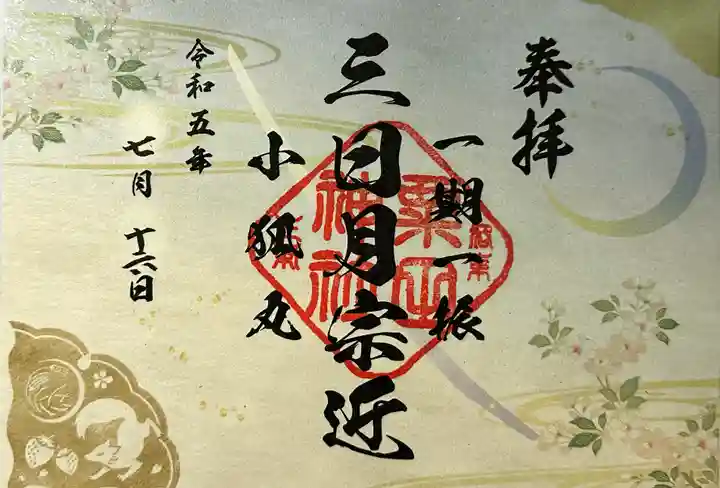 奉拝
一期一振
三日月宗近
小狐丸
令和五年
七月十六日
粟田
神社